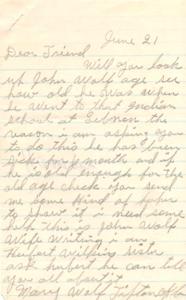 June 21
Dear Friend
Will you look
up John Wolf age see
how old he was when
he went to that Indian
school at
the reason is am asking you
to do this he has been
sick for month and if
he is old enough for the
old age check you send
me some kind of paper
to show it i need some
help this is John Wolf
Wife writing i am
Hubert sister
ask hubert he can tell
you all about it
Mary Wolf